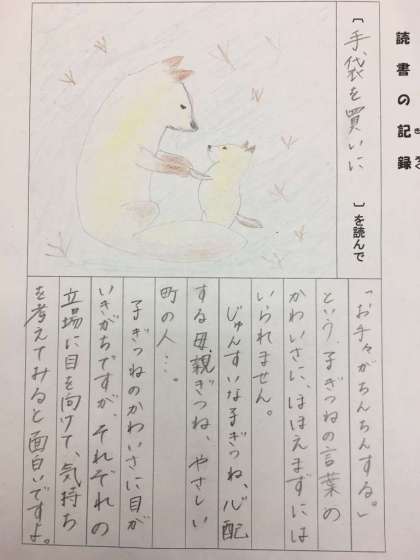 読書の記録
〔手袋を買いに〕を読んで
「お手々がちんちんする。」
という、子ぎつねの言葉の
かわいさに、ほほえまずには
いられません。
じゅんすいな子ぎつね、心配
する母親ぎつね、やさしい
町の人…。
子ぎつねのかわいさに目が
いきがちですが、それぞれの
立場に目を向けて、気持ち
を考えてみると面白いですよ。